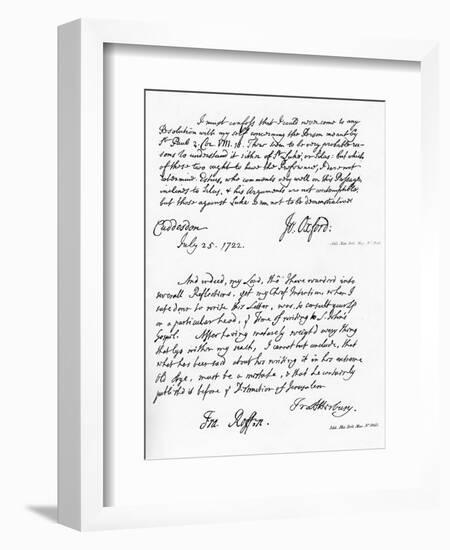 I must confess that I could never come to any
Resolution with my self concerning the Person meant by
St Paul 2. Cor. VIII. 18. There seem to be very probable rea-
sons to understand it either of St Luke, or Silas: but which
of these two ought to have the Preference, I dare not
determine. Estius, who comments very well on this Passage,
inclines to Silas, & his Arguments are not contemptible,
but those against Luke I own not to be demonstrative
Cuddesdon Jo. Oxford:
July 25. 1722.
And indeed, my Lord, tho' I have wander'd into
severall Reflections, yet my chief Intention, when I
sate down to write this Letter, was, to consult you
in a particular head, ye Time of writing St. John's
Gospel. After having maturely weigh'd every thing
that lyes within my reach, I cannot but conclude, that
what has been said about his writing it in his extreme
Old Age, must be a mistake, & that he certainly
publish'd it before ye Destruction of Jerusalem
Fr. Atterbury.
Fra. Roffen.